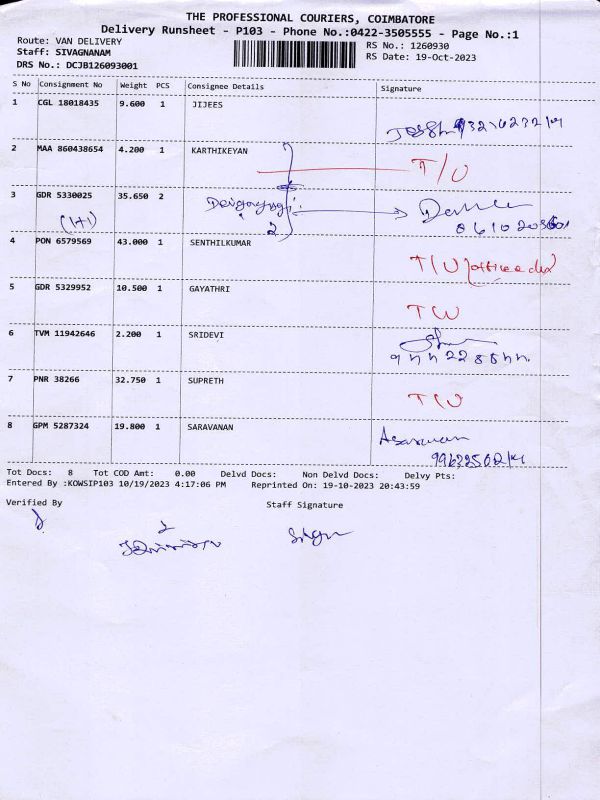 THE PROFESSIONAL COURIERS, COIMBATORE
Delivery Runsheet - P103 - Phone No.:0422-3505555 - Page No.:1
Route: VAN DELIVERY
RS No.: 1260930
Staff: SIVAGNANAM
RS Date: 19-Oct-2023
DRS No.: DCJB126093001
S No Consignment No Weight PCS Consignee Details Signature
1 CGL 18018435 9.600 1 JIJEES
2 MAA 860438654 4.200 1 KARTHIKEYAN
T/U
3 GDR 5330025 35.650 2
(1+1)
2
4 PON 6579569 43.000 1 SENTHILKUMAR
T/U
5 GDR 5329952 10.500 1 GAYATHRI
6 TVM 11942646 2.200 1 SRIDEVI
7 PNR 38266 32.750 1 SUPRETH
T/U
8 GPM 5287324 19.800 1 SARAVANAN
Tot Docs: 8 Tot COD Amt: 0.00 Delvd Docs: Non Delvd Docs: Delvy Pts:
Entered By :KOWSIP103 10/19/2023 4:17:06 PM Reprinted On: 19-10-2023 20:43:59
Verified By Staff Signature